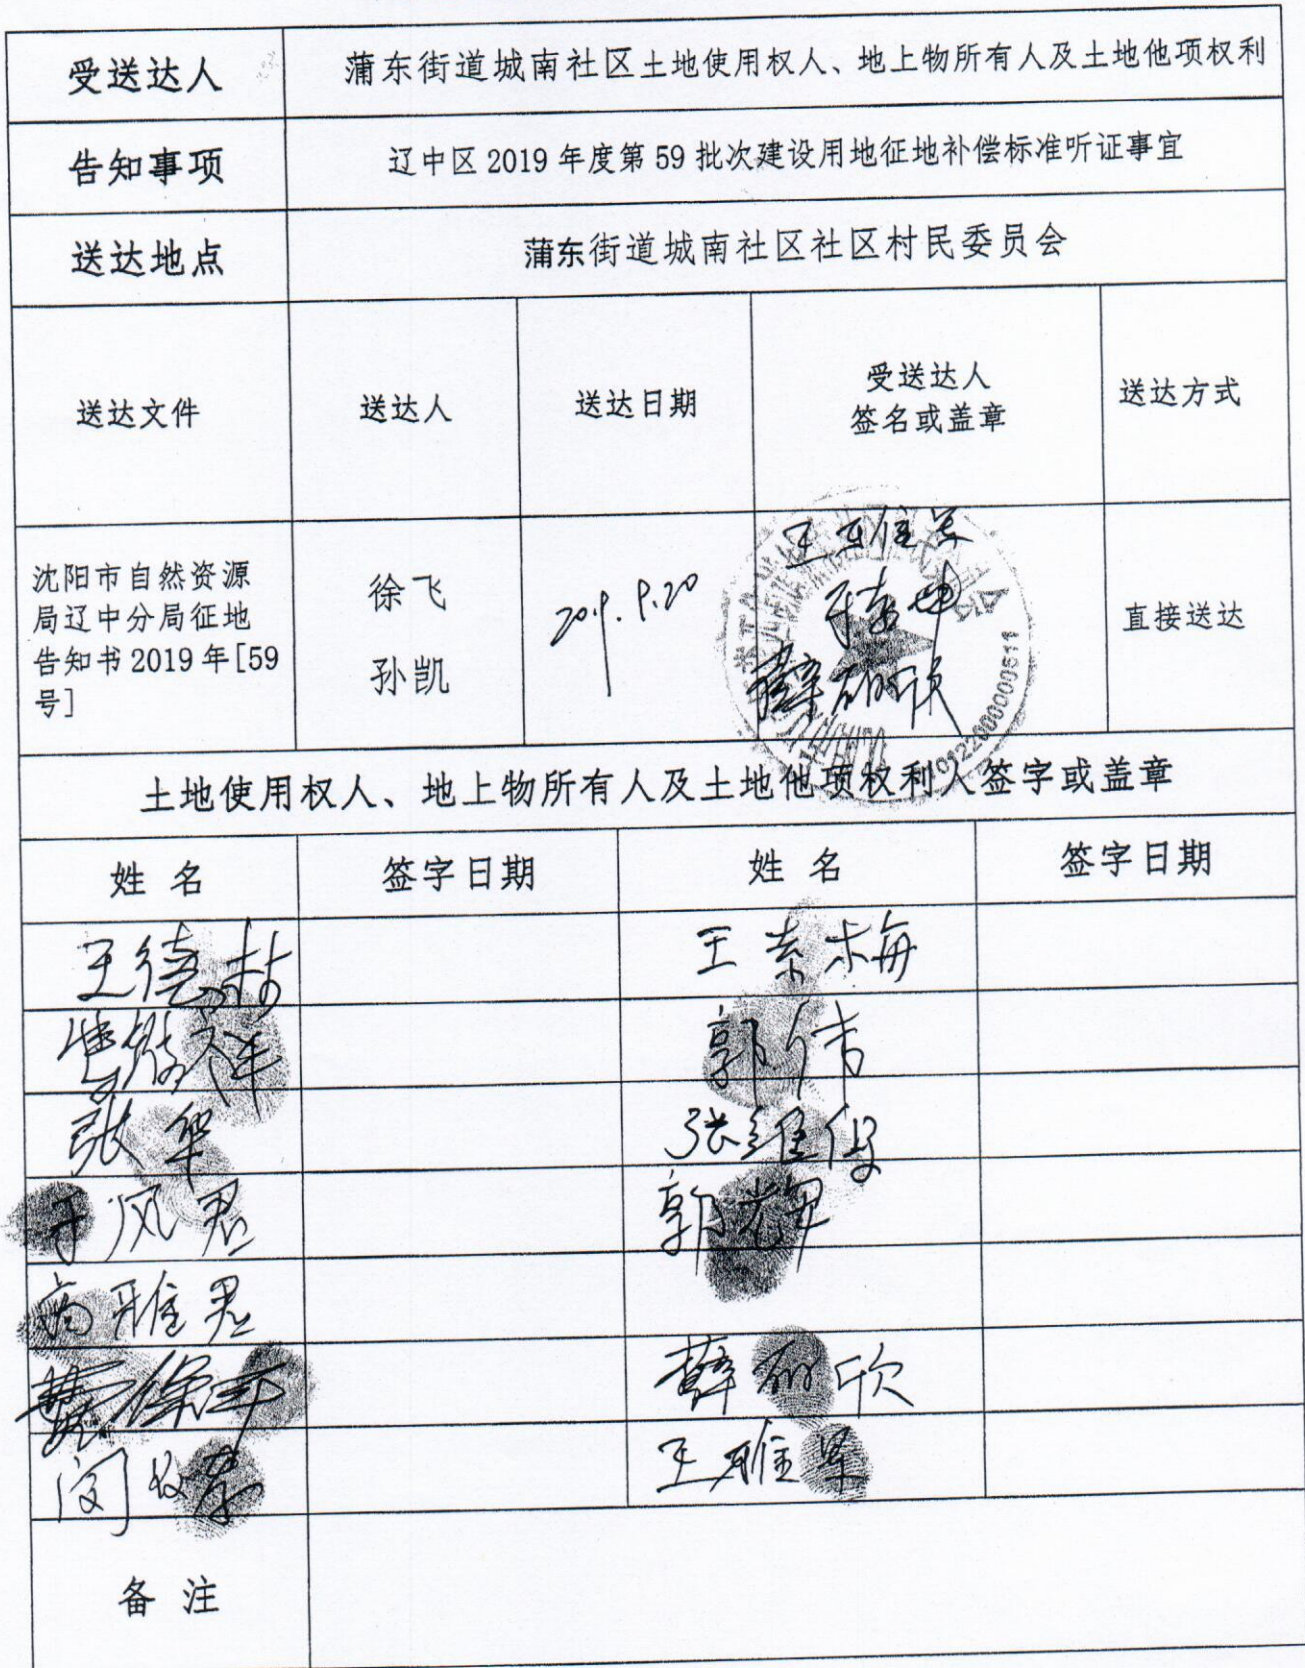 受送达人
蒲东街道城南社区土地使用权人、地上物所有人及土地他项权利
告知事项
辽中区2019年度第59批次建设用地征地补偿标准听证事宜
送达地点
蒲东街道城南社区社区村民委员会
送达文件
送达人
送达日期
受送达人
签名或盖章
送达方式
沈阳市自然资源
局辽中分局征地
告知书2019年[59
号]
徐飞
孙凯
2019.9.20
薛丽欣
直接送达
土地使用权人、地上物所有人及土地他项权利人签字或盖章
姓 名
签字日期
姓 名
签字日期
王德林
王素梅
郭伟
张华
张维俊
于凤君
郭光军
雅君
薛丽欣
王雅军
备 注